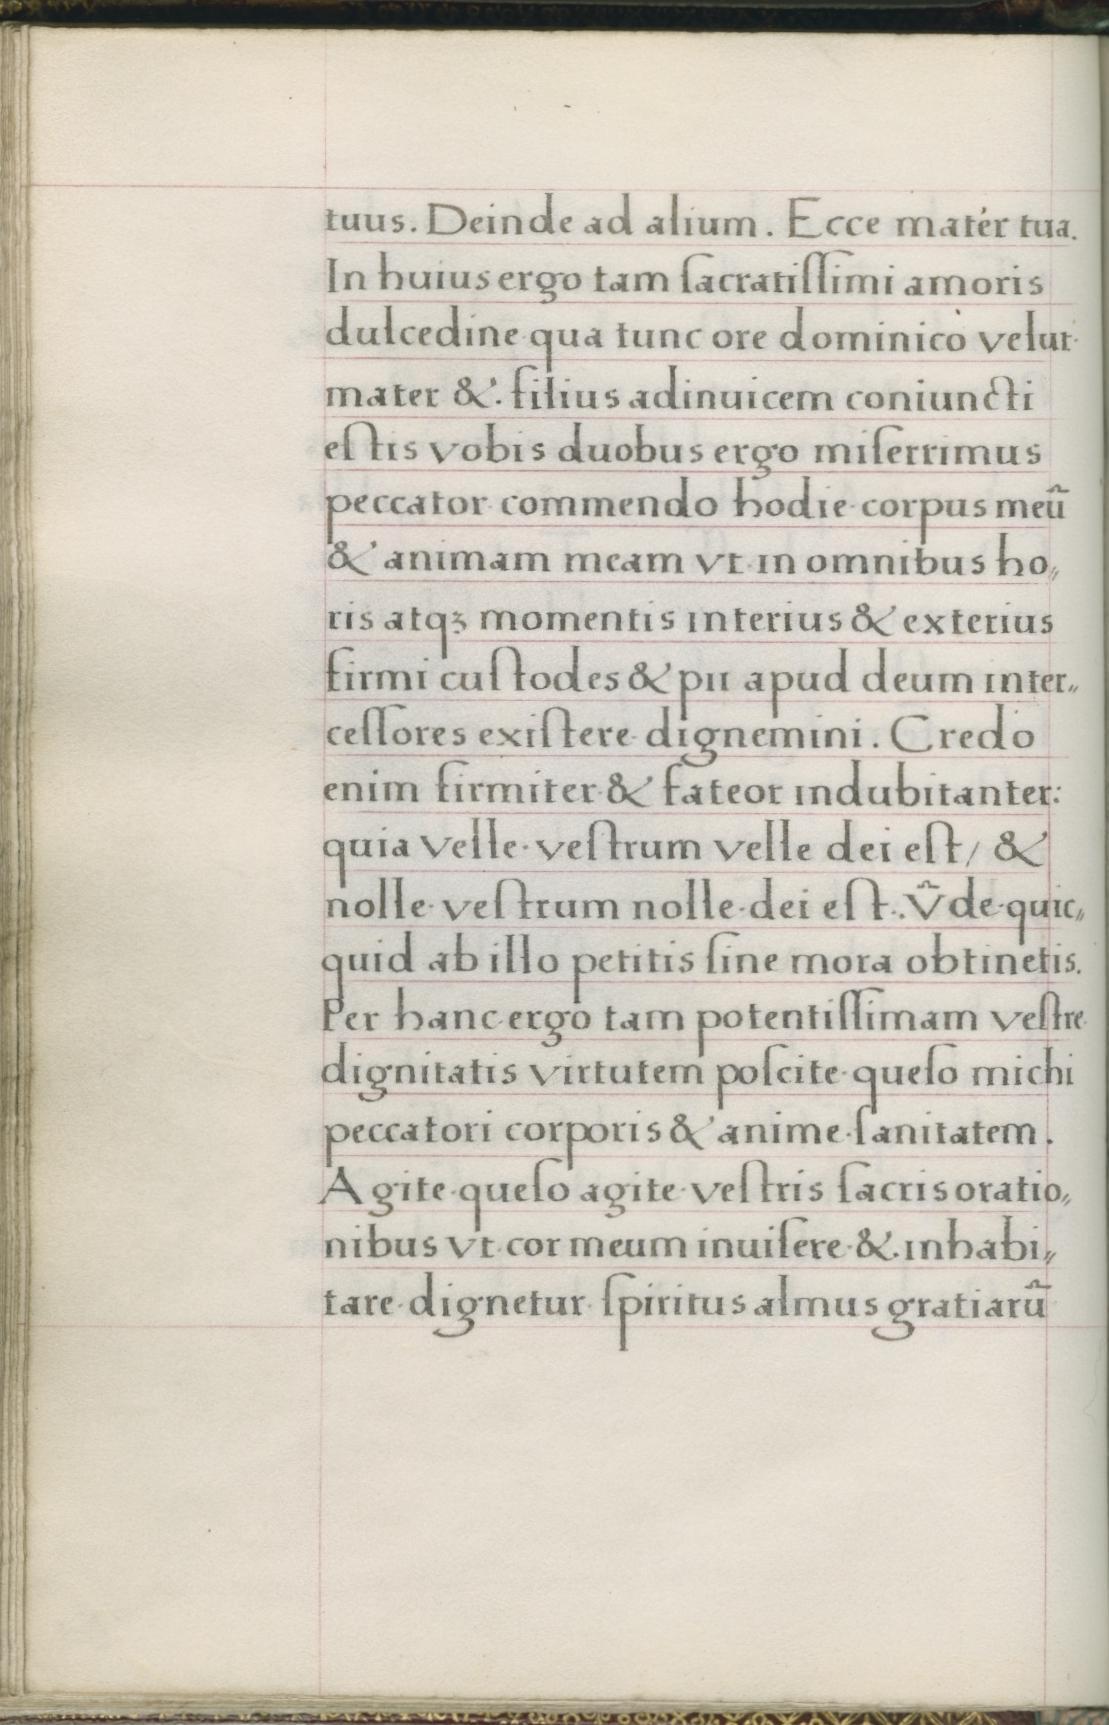 tuus. Deinde ad alium. Ecce matér tua.
In huius ergo tam ſacratiſſimi amoris
dulcedine qua tunc ore dominicò velut
mater &. filius adinuicem coniuncti
eſtis vobis duobus ergo miſerrimus
peccator commendo hodie corpus meũ
& animam meam vt in omnibus ho„
ris atqȝ momentis interius & exterius
firmi cuſtodes & pii apud deum inter„
ceſſores exiſtere dignemini. Credo
enim firmiter & fateor indubitanter:
quia velle veſtrum velle dei eſt / &
nolle veſtrum nolle dei eſt. Ṽde quic„
quid ab illo petitis ſine mora obtinetis.
Per hanc ergo tam potentiſſimam veſtre
dignitatis virtutem poſcite queſo michi
peccatori corporis & anime ſanitatem.
Agite queſo agite veſtris ſacris oratio„
nibus vt cor meum inuiſere &. inhabi„
tare dignetur ſpiritus almus gratiarũ